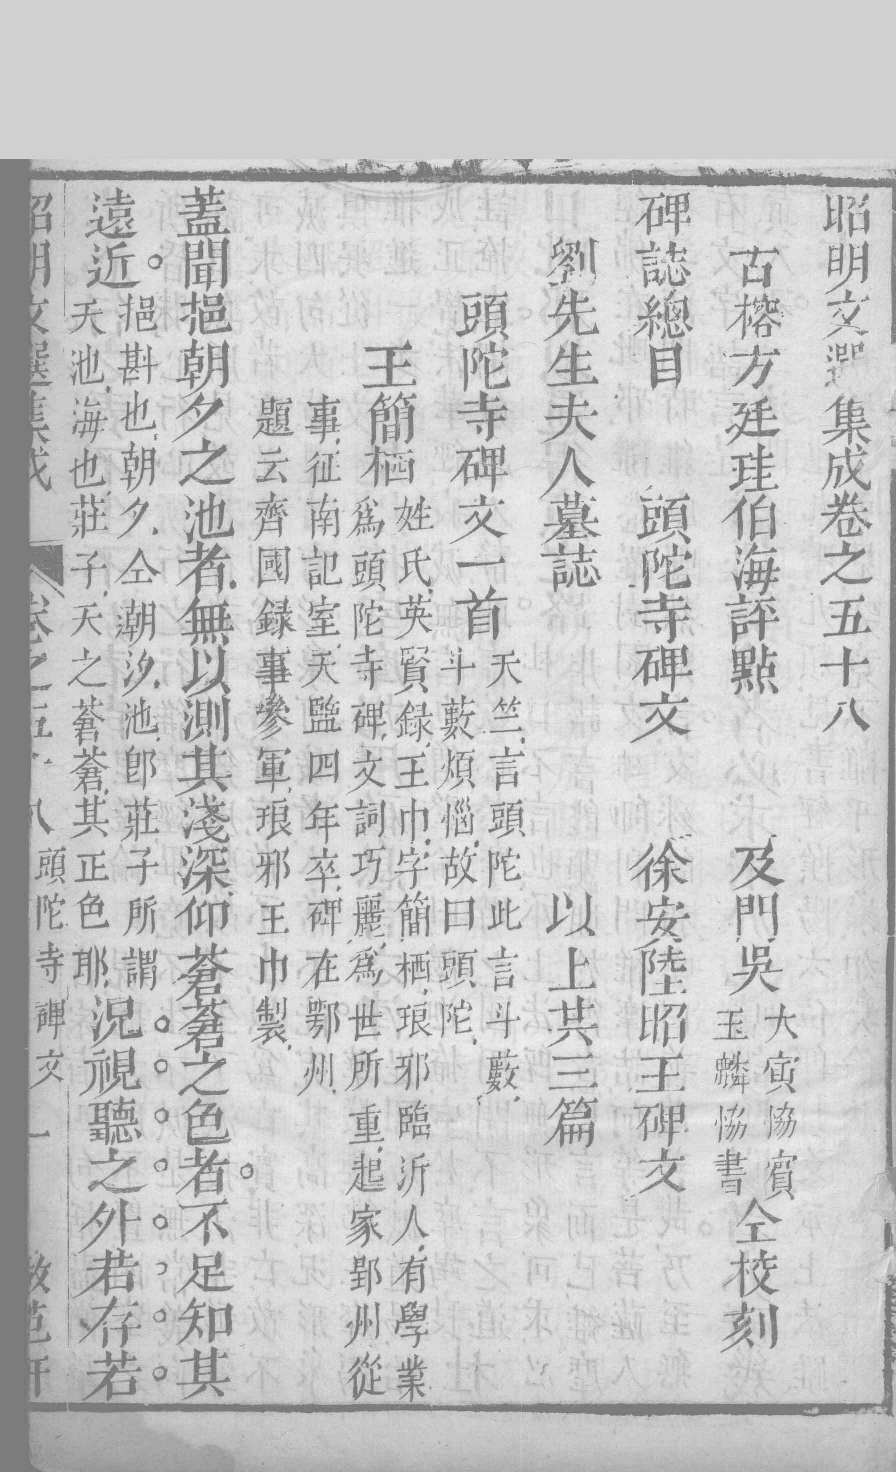 昭明文選集成卷之五十八
古榕方廷珪伯海評點 及門吳 大寅協賓 玉麟協書 仝校刻
碑誌總目 頭陀寺碑文 徐安陸昭王碑文
劉先生夫人墓誌 以上共三篇
頭陀寺碑文一首 天竺言頭陀此言斗藪
斗藪煩惱故曰頭陀
王簡栖 姓氏英賢録王巾字簡栖琅邪臨沂人有學業
爲頭陀寺碑文詞巧麗爲世所重起家郢州從
事征南記室天監四年卒碑在鄂州
題云齊國録事參軍琅邪王巾製
蓋聞挹朝夕之池者無以測其淺深仰蒼蒼之色者不足知其
遠近 挹斟也朝夕仝潮汐池卽莊子所謂
天池海也莊子天之蒼蒼其正色耶
況視聽之外若存若
昭明文選集成 卷之五十八 頭陀寺碑文 一 倣范軒